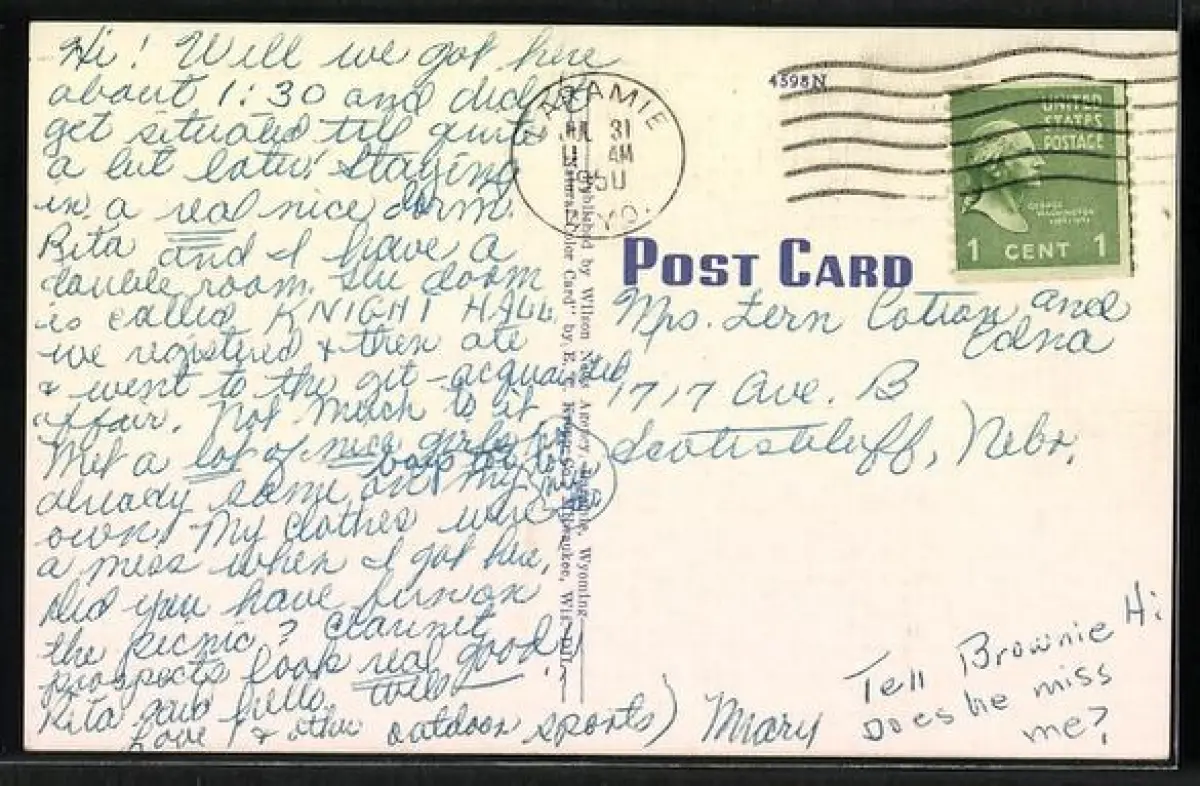 Hi! Will we got here
about 1:30 and didn't
get situated till quite
a bit later! Staying
in a real nice dorm.
Rita and I have a
double room. The dorm
is called KNIGHT HALL.
we registered & then ate
& went to the git-acquainted
affair. Not much to it
Met a lot of nice girls
boys too
already some on my
own! My clothes were
a mess when I got here,
Did you have fun on
the picnic? Clarinet
prospects look real good!
Rita said hello. Well
Love & other outdoor sports) Mary
LARAMIE
JUL 31
AM
1950
WYO.
4598N
UNITED
STATES
POSTAGE
GEORGE
WASHINGTON
1 CENT 1
POST CARD
Mrs. Fern Cotton and
Edna
1717 Ave. B
Scottsbluff, Nebr.
Tell Brownie Hi
Does he miss
me?
Published by Wilson News Agency, Wyoming
Natural Color Card" by E. C. Milwaukee, Wis.